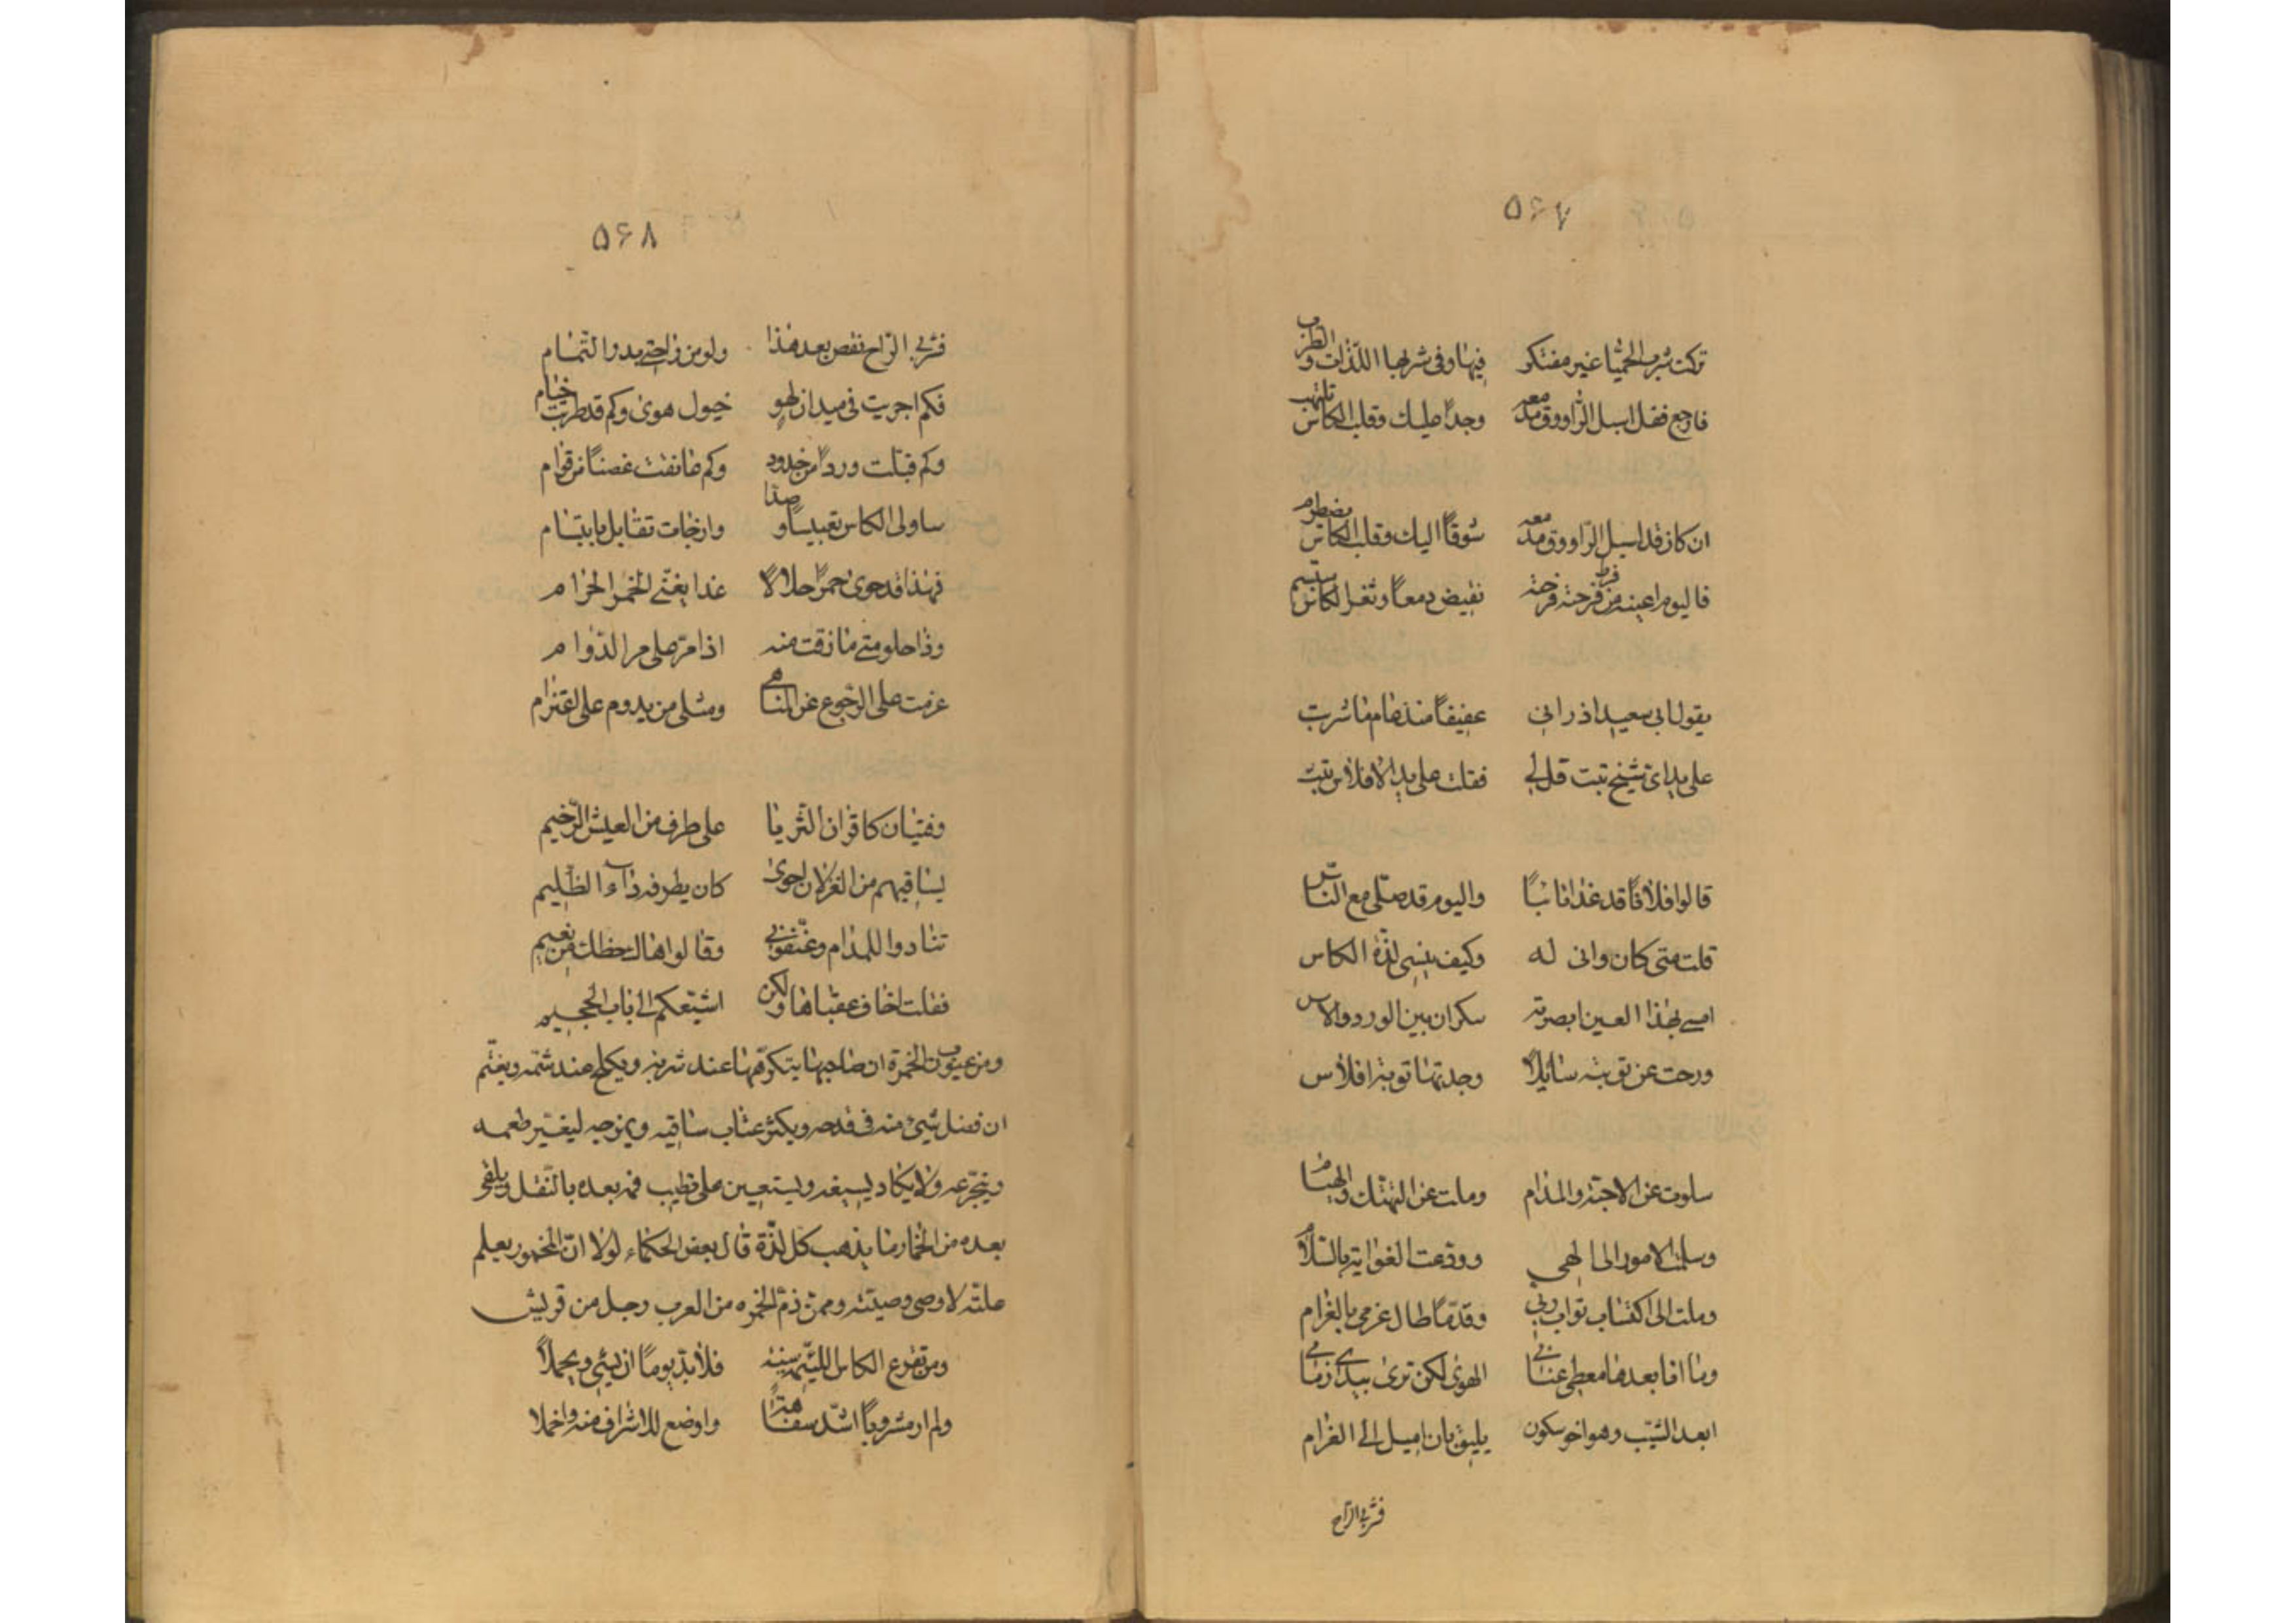 ٥۶٧
تركت شرب الحميّا غير مفتكر فيها وفى شربها اللّذات والطرب
فارجع فقد اسبل الرّاووق مدمعه وجداً عليك وقلب الكاس تلتهب
ان كان قد اسبل الرّاووق مدمعه شوقاً اليك وقلب الكاس مضطرم
فاليوم اعينه من فرط فرحته تفيض دمعاً وثغر الكاس يبتسم
يقول ابى سعيد اذ رانى عفيفاً منذ عام ما شربت
على يد اىّ شيخ تبت قل لى فقلت على يد الافلاس تبت
قالوا فلاناً قد غدا تائباً واليوم قد صلّى مع النّاس
قلت متى كان وانى له وكيف ينسى لذّة الكاس
امسى بهذا العين ابصرته سكران بين الورد والاس
ورحت عن توبته سائلاً وجدتها توبة افلاس
سلوت عن الاحبّة والمدام وملت عن التهتّك والهيام
وسلمت الامور الى الهى وودّعت الغواية بالسّلام
وملت الى اكتساب ثواب ربى وقدماً طال عزمى بالغرام
وما انا بعدها معطى عنانى الهوى لكن ترى بيدى زمامى
ابعد الشيب وهو اخو سكون يليق بان اميل الى الغرام
فشرب الرّاح
٥۶٨
فشرب الرّاح نقص بعد هذا ولو من راحتى بدر التّمام
فكم اجريت فى ميدان لهو خيول هوى وكم قد طربت خيام
وكم قبّلت ورداً من خدود وكم عانقت غصناً من قوام
ساولى الكاس تعبيساً وصدّا وان جات تقابل بابتسام
فهذا قد حوى خمراً حلالاً غدا يغنّى الخمر الحرام
وذا حلو متى ما ذقت منه اذا مرّ على مر الدّوام
عزمت على الرّجوع عن المناهى ومثلى من يدوم على اعتزام
وفتيان كاقران الثّريا على طرف من العيش الرّخيم
يساقيهم من الغزلان احوى كان بطرفه داء الظّليم
تنادوا للمدام وعنّفونى وقالوا هاك حظك من نعيم
فقلت اخاف عقباها ولكن اشيّعكم الى باب الجحيم
ومن عيوب الخمرة ان صاحبها يتكرّهها عند شربه ويكلح عند شمّه ويغتّم
ان فضل شىئ منه فى قدحه ويكثر عتاب ساقيه ويمزجه ليغيّر طعمه
ويتجرّعه ولا يكاد يسيغه ويستعين على تطييب فمه بعده بالنّقل ويلقى
بعده من الخمار ما يذهب كل لذّة قال بعض الحكماء لولا انّ المخمور يعلم
علّته لاوصى وصيّته وممّن ذمّ الخمره من العرب رجل من قريش
ومن تقرع الكاس اللئيمة سنّه فلا بدّ يوماً ان يسئ ويجهلاً
ولم ار مشروباً اشدّ سفاهةً واوضع للاشراف منه واخملا